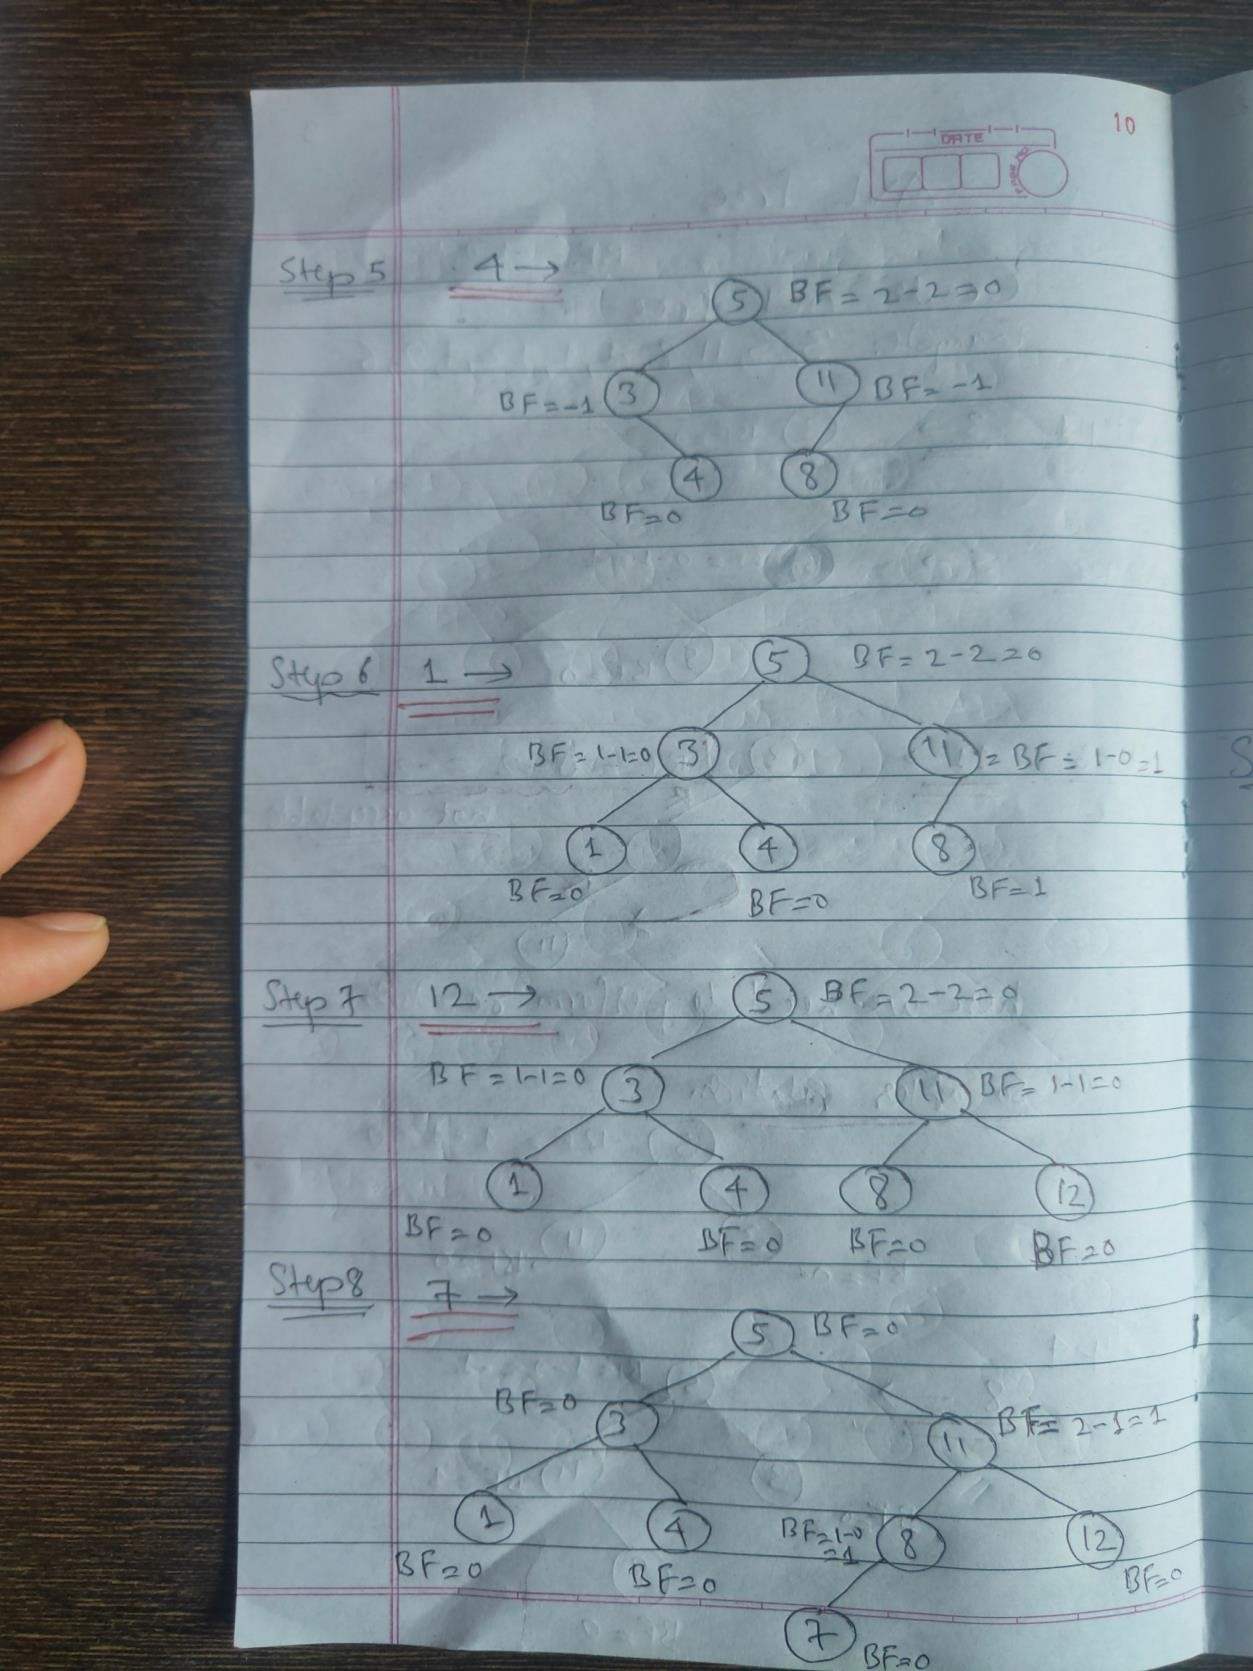 10
DATE
PAGE NO
Step 5 4 →
5 BF = 2-2=0
BF=-1 3 11 BF= -1
4 8
BF=0 BF=0
Step 6 1 →
5 BF = 2-2=0
BF= 1-1=0 3 11 = BF = 1-0=1
1 4 8
BF=0 BF=0 BF=1
Step 7 12 →
5 BF=2-2=0
BF=1-1=0 3 11 BF= 1-1=0
1 4 8 12
BF=0 BF=0 BF=0 BF=0
Step8 7 →
5 BF=0
BF=0 3 11 BF= 2-1=1
1 4 BF=1-0 8 12
=1
BF=0 BF=0 BF=0
7 BF=0